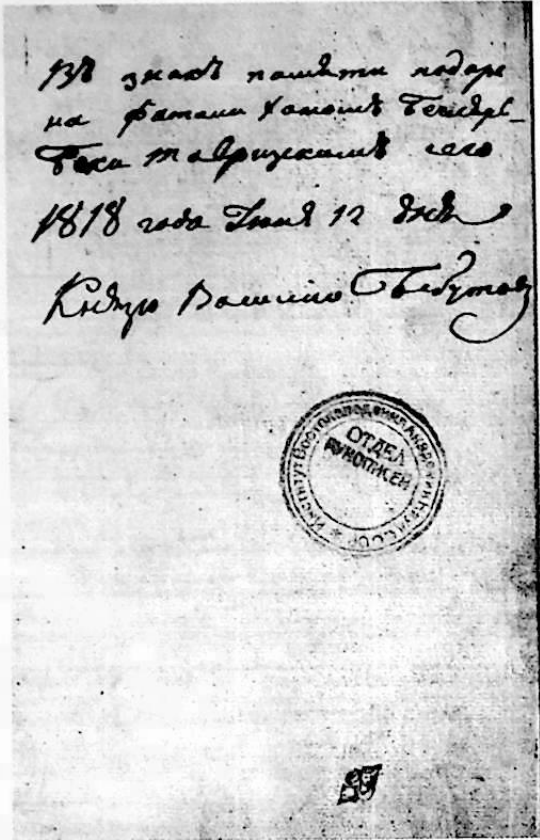 Въ знакъ памяти подаре
на Фатали Ханомъ Беглярь-
Беки Тавризкимъ сего
1818 года Iюня 12 дня
Князю Василию Бебутову
Институт Востоковедения Академии Наук СССР *
ОТДЕЛ
РУКОПИСЕЙ